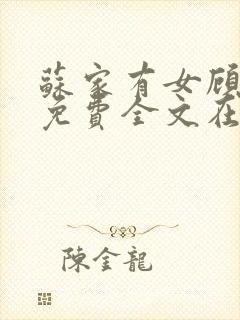 蘇家有女顧
免費全文在
陳金龍